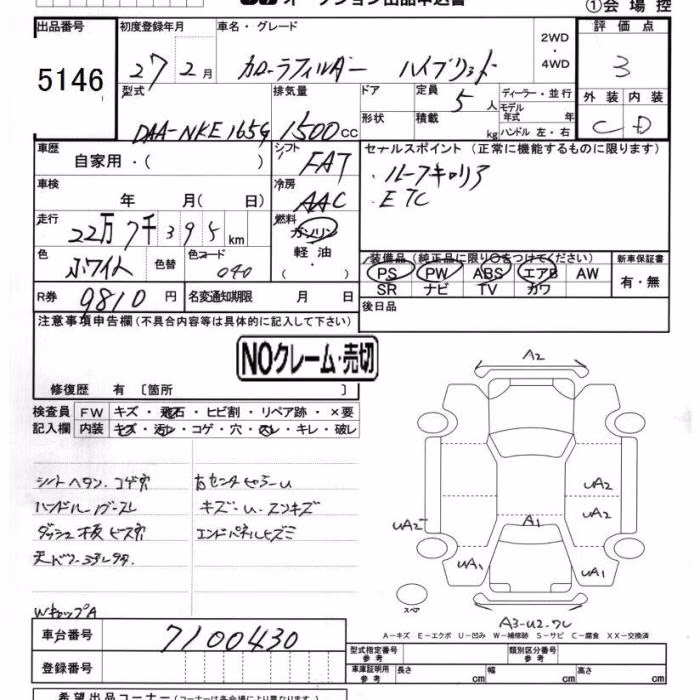 オークション出品申込書
①会場控
出品番号 初度登録年月 車名・グレード 2WD・4WD 評価点
5146 27 2月 カローラフィルダー ハイブリッド 3
型式 排気量 ドア 定員 5人 ディーラー・並行 外装 内装
形状 積載 kg モデル年式 年 ハンドル 左・右
DAA-NKE165G 1500cc C D
車歴 自家用・( ) シフト FAT セールスポイント (正常に機能するものに限ります)
・ルーフキャリア
・ETC
車検 年 月( 日) 冷房 AAC
走行 22万7千395km 燃料 ガソリン 軽油・( )
色 ホワイト 色替 色コード 040
装備品 (純正品に限り○をつけてください) 新車保証書
PS PW ABS エアB AW 有・無
SR ナビ TV カワ
R券 9810円 名変通知期限 月 日 後日品
注意事項申告欄(不具合内容等は具体的に記入して下さい)
NOクレーム・売切
修復歴 有 〔箇所 〕
検査員 FW キズ・飛石・ヒビ割・リペア跡・×要
記入欄 内装 キズ・汚レ・コゲ・穴・スレ・キレ・破レ
シートヘタン.コゲ穴
ハンドル
ダッシュ板ビス穴
WキャップA
キズ-U.
A2
UA2
UA2
UA2
A1
UA1
UA1
スペア
A3-U2
A-キズ E-エクボ U-凹み W-補修跡 S-サビ C-腐食 XX-交換済
車台番号 7100430
登録番号
型式指定番号 参考 類別区分番号 参考
車庫証明用 参考 長さ cm 幅 cm 高さ cm
希望出品コーナー